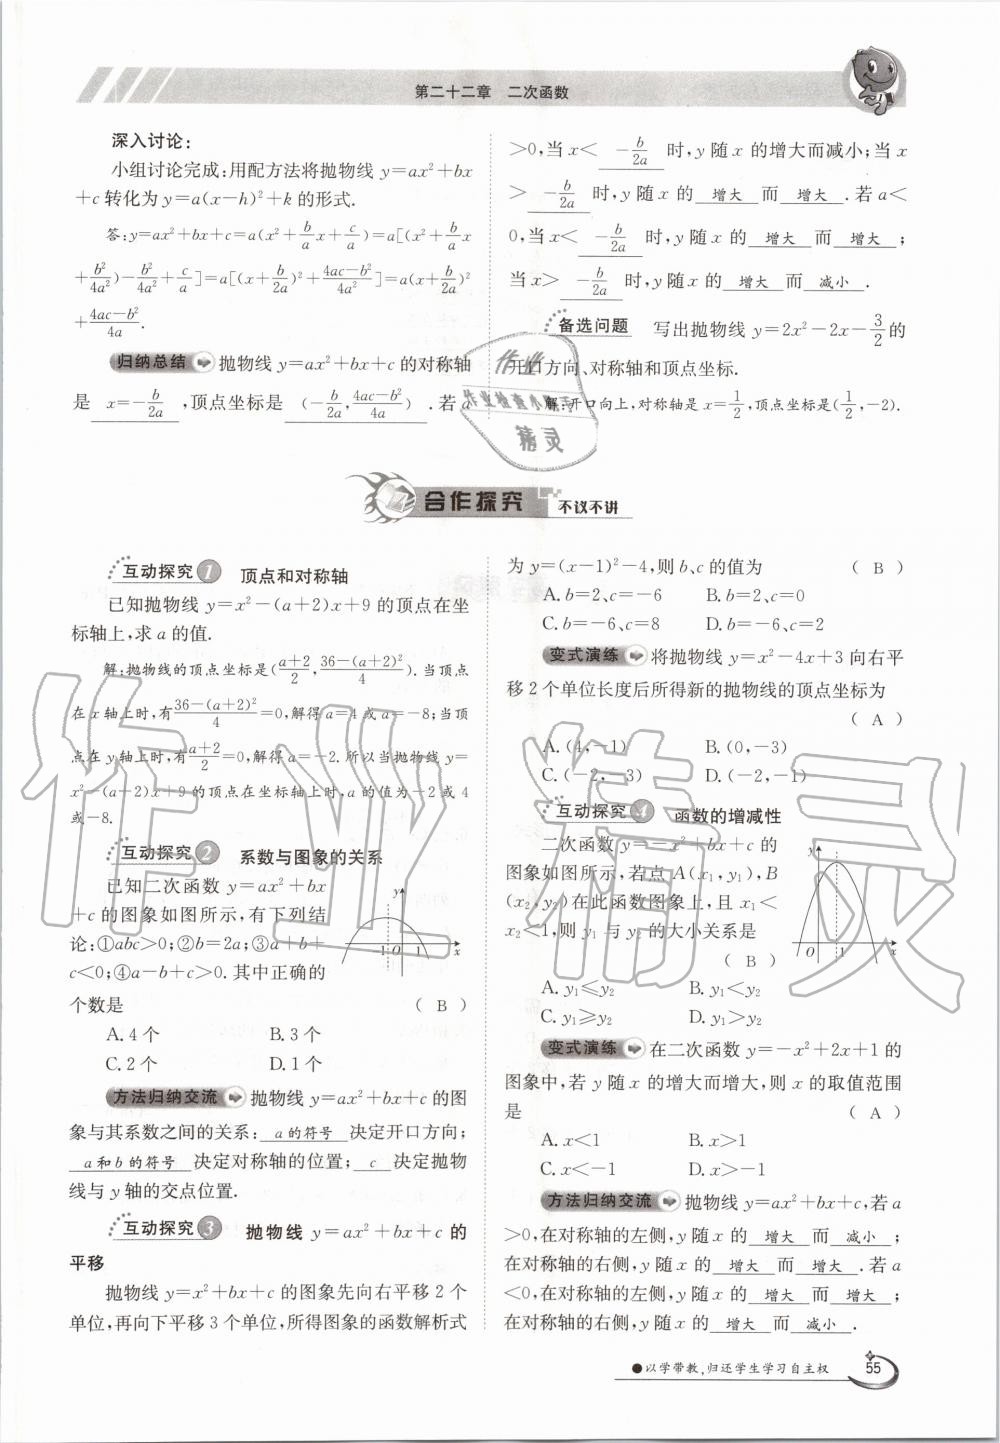 第二十二章 二次函数
深入讨论:
小组讨论完成:用配方法将抛物线 y=ax²+bx
+c 转化为 y=a(x-h)²+k 的形式.
答:y=ax²+bx+c=a(x²+b/a x+c/a)=a[(x²+b/a x
+b²/4a²)-b²/4a²+c/a]=a[(x+b/2a)²+(4ac-b²)/4a²]=a(x+b/2a)²
+(4ac-b²)/4a.
归纳总结 抛物线 y=ax²+bx+c 的对称轴
是 x=-b/2a ,顶点坐标是 (-b/2a,(4ac-b²)/4a) .若 a
>0,当 x< -b/2a 时,y 随 x 的增大而减小;当 x
> -b/2a 时,y 随 x 的 增大 而 增大 .若 a<
0,当 x< -b/2a 时,y 随 x 的 增大 而 增大 ;
当 x> -b/2a 时,y 随 x 的 增大 而 减小 .
备选问题 写出抛物线 y=2x²-2x-3/2 的
开口方向、对称轴和顶点坐标.
解:开口向上,对称轴是 x=1/2,顶点坐标是(1/2,-2).
作业
作业检查小助手
精灵
合作探究 不议不讲
互动探究 1 顶点和对称轴
已知抛物线 y=x²-(a+2)x+9 的顶点在坐
标轴上,求 a 的值.
解:抛物线的顶点坐标是((a+2)/2,(36-(a+2)²)/4).当顶点
在 x 轴上时,有(36-(a+2)²)/4=0,解得 a=4 或 a=-8;当顶
点在 y 轴上时,有(a+2)/2=0,解得 a=-2.所以当抛物线 y=
x²-(a+2)x+9 的顶点在坐标轴上时,a 的值为-2 或 4
或-8.
互动探究 2 系数与图象的关系
已知二次函数 y=ax²+bx
+c 的图象如图所示,有下列结
论:①abc>0;②b=2a;③a+b+
c<0;④a-b+c>0.其中正确的
个数是 ( B )
y
-1 O 1 x
A.4 个 B.3 个
C.2 个 D.1 个
方法归纳交流 抛物线 y=ax²+bx+c 的图
象与其系数之间的关系: a 的符号 决定开口方向;
a 和 b 的符号 决定对称轴的位置; c 决定抛物
线与 y 轴的交点位置.
互动探究 3 抛物线 y=ax²+bx+c 的
平移
抛物线 y=x²+bx+c 的图象先向右平移 2 个
单位,再向下平移 3 个单位,所得图象的函数解析式
为 y=(x-1)²-4,则 b、c 的值为 ( B )
A.b=2、c=-6 B.b=2、c=0
C.b=-6、c=8 D.b=-6、c=2
变式演练 将抛物线 y=x²-4x+3 向右平
移 2 个单位长度后所得新的抛物线的顶点坐标为
( A )
A.(4,-1) B.(0,-3)
C.(-2,-3) D.(-2,-1)
互动探究 4 函数的增减性
二次函数 y=-x²+bx+c 的
图象如图所示,若点 A(x₁,y₁),B
(x₂,y₂)在此函数图象上,且 x₁<
x₂<1,则 y₁ 与 y₂ 的大小关系是
( B )
y
O 1 x
A.y₁⩽y₂ B.y₁<y₂
C.y₁⩾y₂ D.y₁>y₂
变式演练 在二次函数 y=-x²+2x+1 的
图象中,若 y 随 x 的增大而增大,则 x 的取值范围
是 ( A )
A.x<1 B.x>1
C.x<-1 D.x>-1
方法归纳交流 抛物线 y=ax²+bx+c,若 a
>0,在对称轴的左侧,y 随 x 的 增大 而 减小 ;
在对称轴的右侧,y 随 x 的 增大 而 增大 .若 a
<0,在对称轴的左侧,y 随 x 的 增大 而 增大 ;
在对称轴的右侧,y 随 x 的 增大 而 减小 .
作业精灵
●以学带教,归还学生学习自主权 55